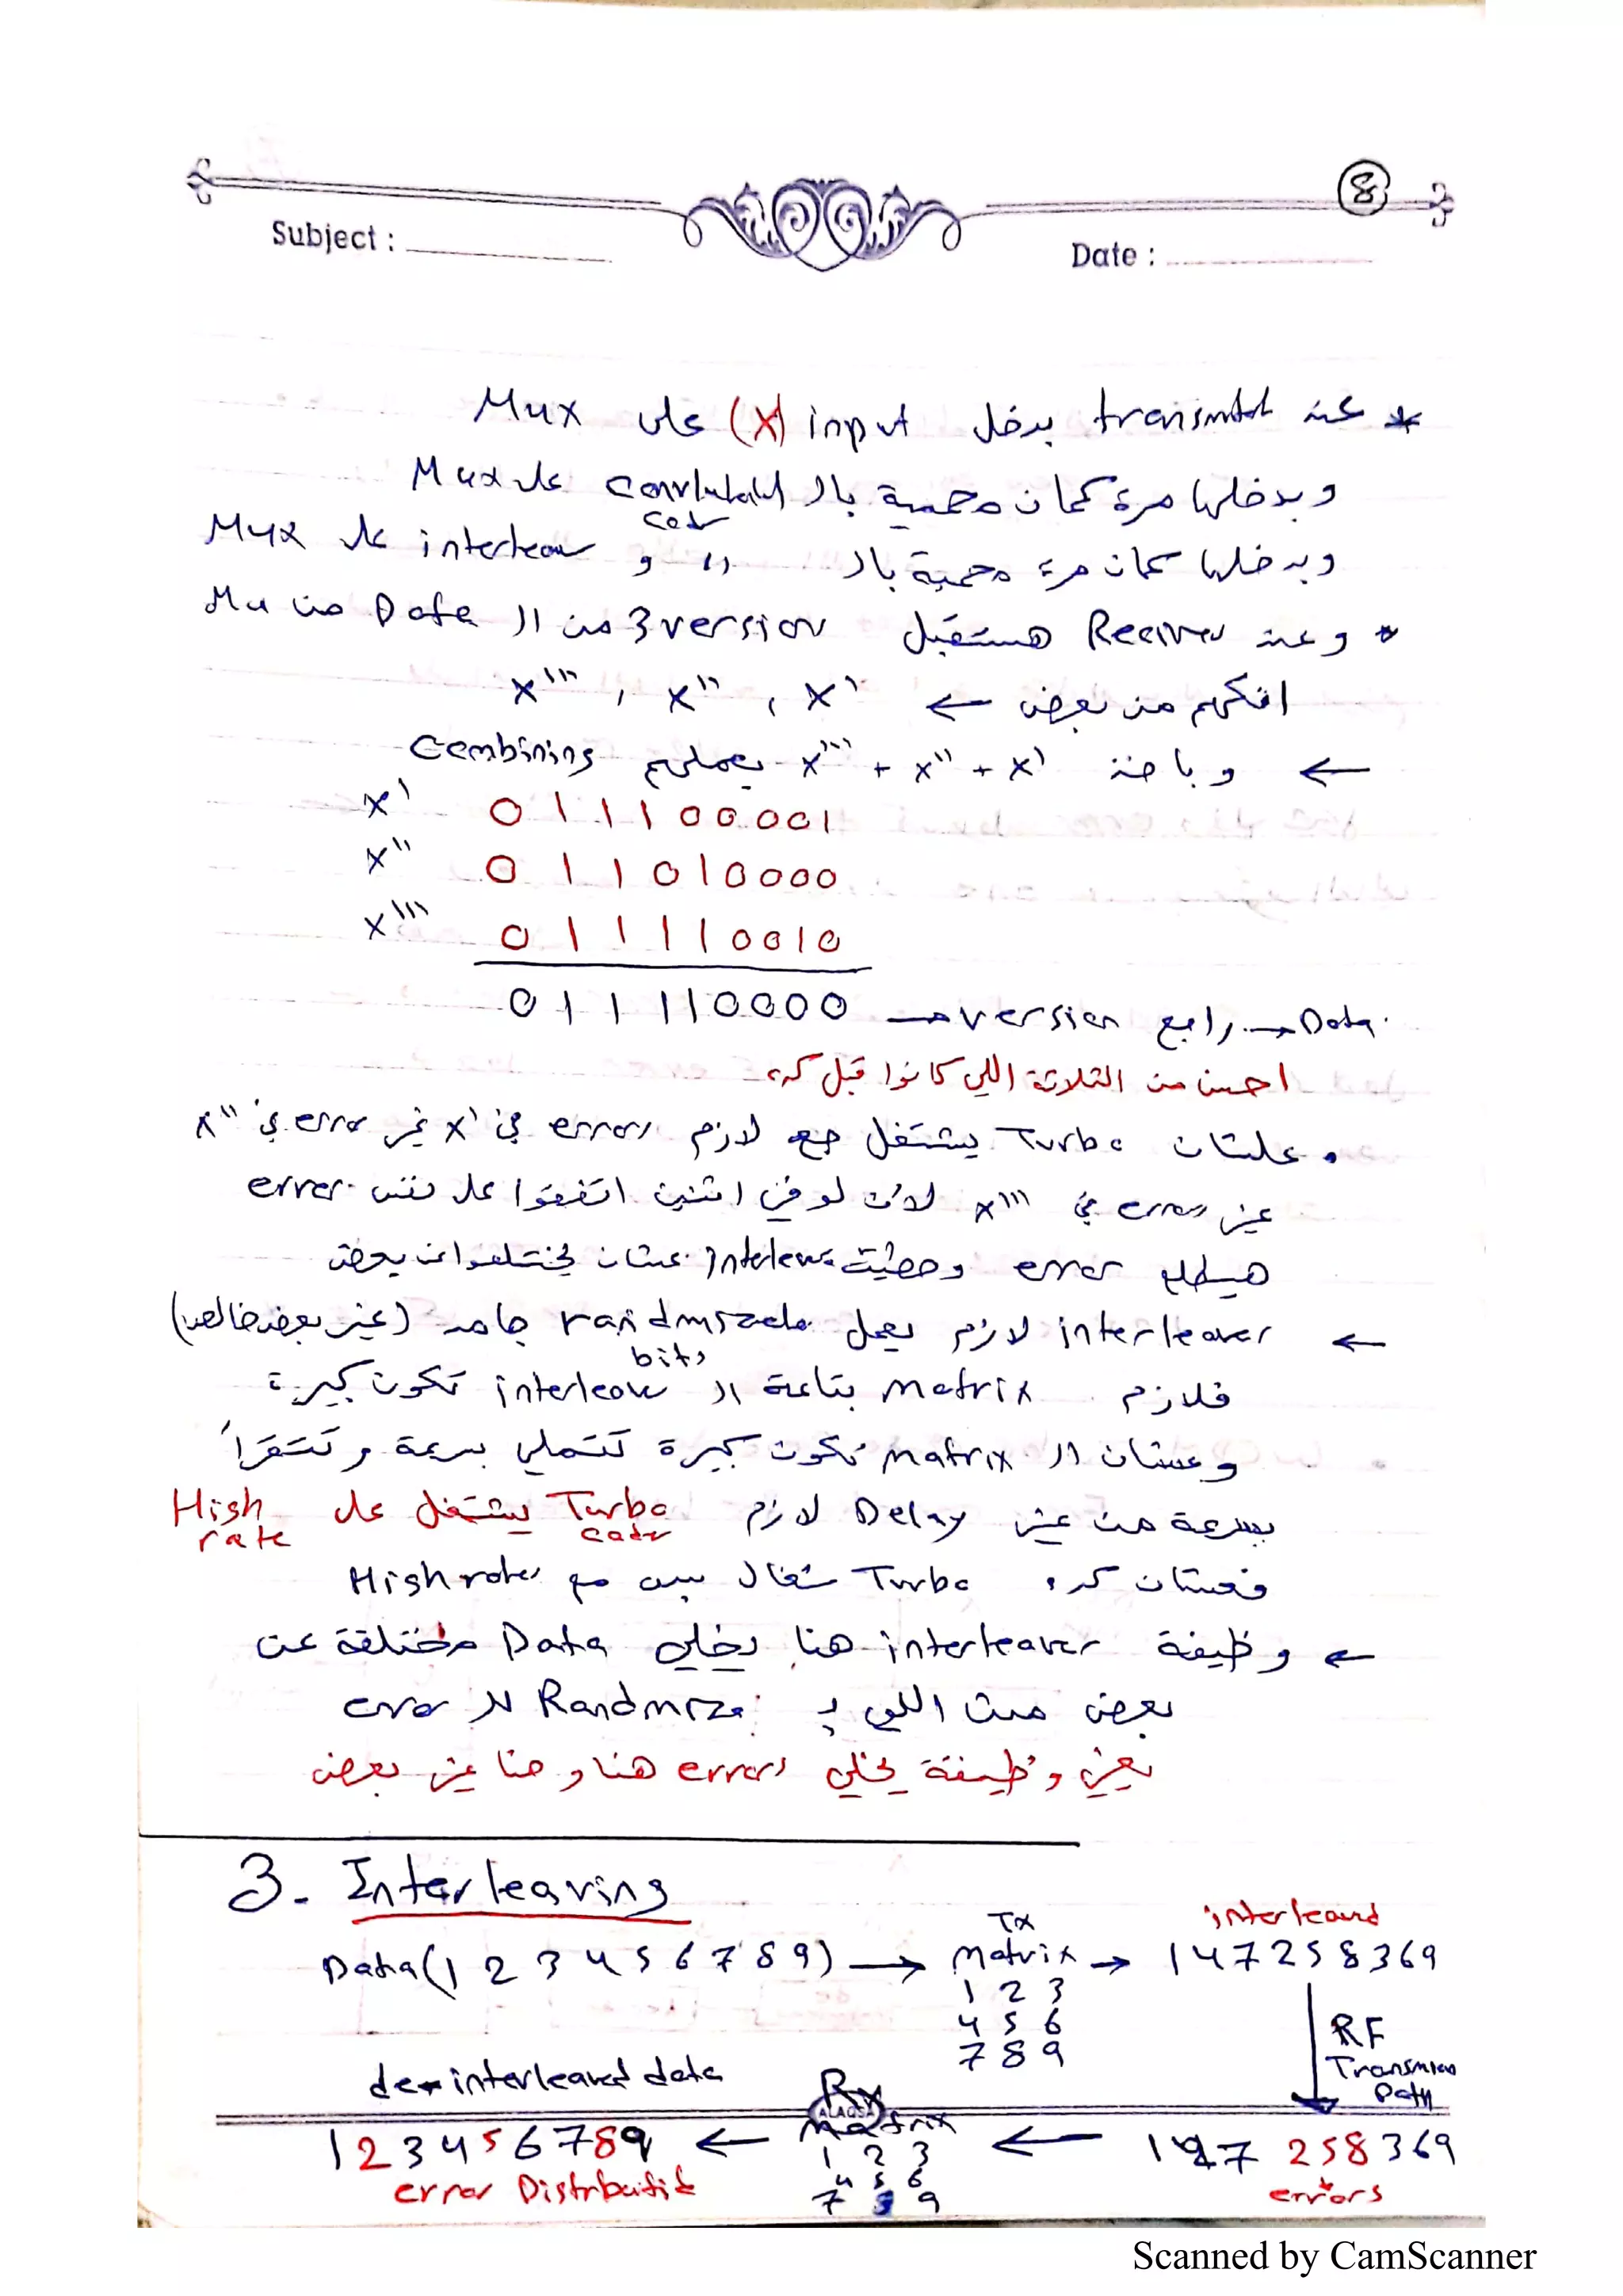 8
Subject :
Date :
* عند transmital بدخل input (X) على Mux
وبدخلها مرة كمان محمية بالـ Convlutaional code على Mux
وبدخلها كمان مرة محمية بالـ " و interleave على Mux
* وعند Reciever هستقبل 3 version من الـ Data من Mu
افكهم من بعض ← X' , X'' , X'''
← وباخد X' + X'' + X''' بعملهم Combining
X' 0 1 1 1 0 0 0 0 1
X'' 0 1 1 0 1 0 0 0 0
X''' 0 1 1 1 1 0 0 1 0
0 1 1 1 1 0 0 0 0 → version رابع → Data
احسن من التلاتة اللي كانوا قبل كده
• علشان Turbo يشتغل صح لازم errors في X' غير error في X''
غير errors في X''' لأن لو في اتنين اتفقوا على نفس error
هيطلع error وحطيت interleave عشان يختلفوا عن بعض
← interleaver لازم يعمل جامد (غير بعض خالص)
فلازم matrix بتاعة الـ interleave bits تكون كبيرة
وعشان الـ matrix تكون كبيرة تتملي بسرعة وتتقرأ
بسرعة من غير Delay لازم Turbo code يشتغل على High rate
فعشان كده Turbo شغال بس مع High rates
← وظيفة interleaver هنا يخلي Data مختلفة عن
بعض مش اللي بـ Randmize للـ error
يعني وظيفتة يخلي errors هنا و هنا غير بعض
3. Interleaving
Data (1 2 3 4 5 6 7 8 9) → Tx Matrix → interleaved 1 4 7 2 5 8 3 6 9
1 2 3
4 5 6
7 8 9
RF Path
de-interleaved data
1 2 3 4 5 6 7 8 9 ← Rx Matrix ← 1 4 7 2 5 8 3 6 9
ALAQSA
1 2 3
4 5 6
7 8 9
error
errors
Scanned by CamScanner